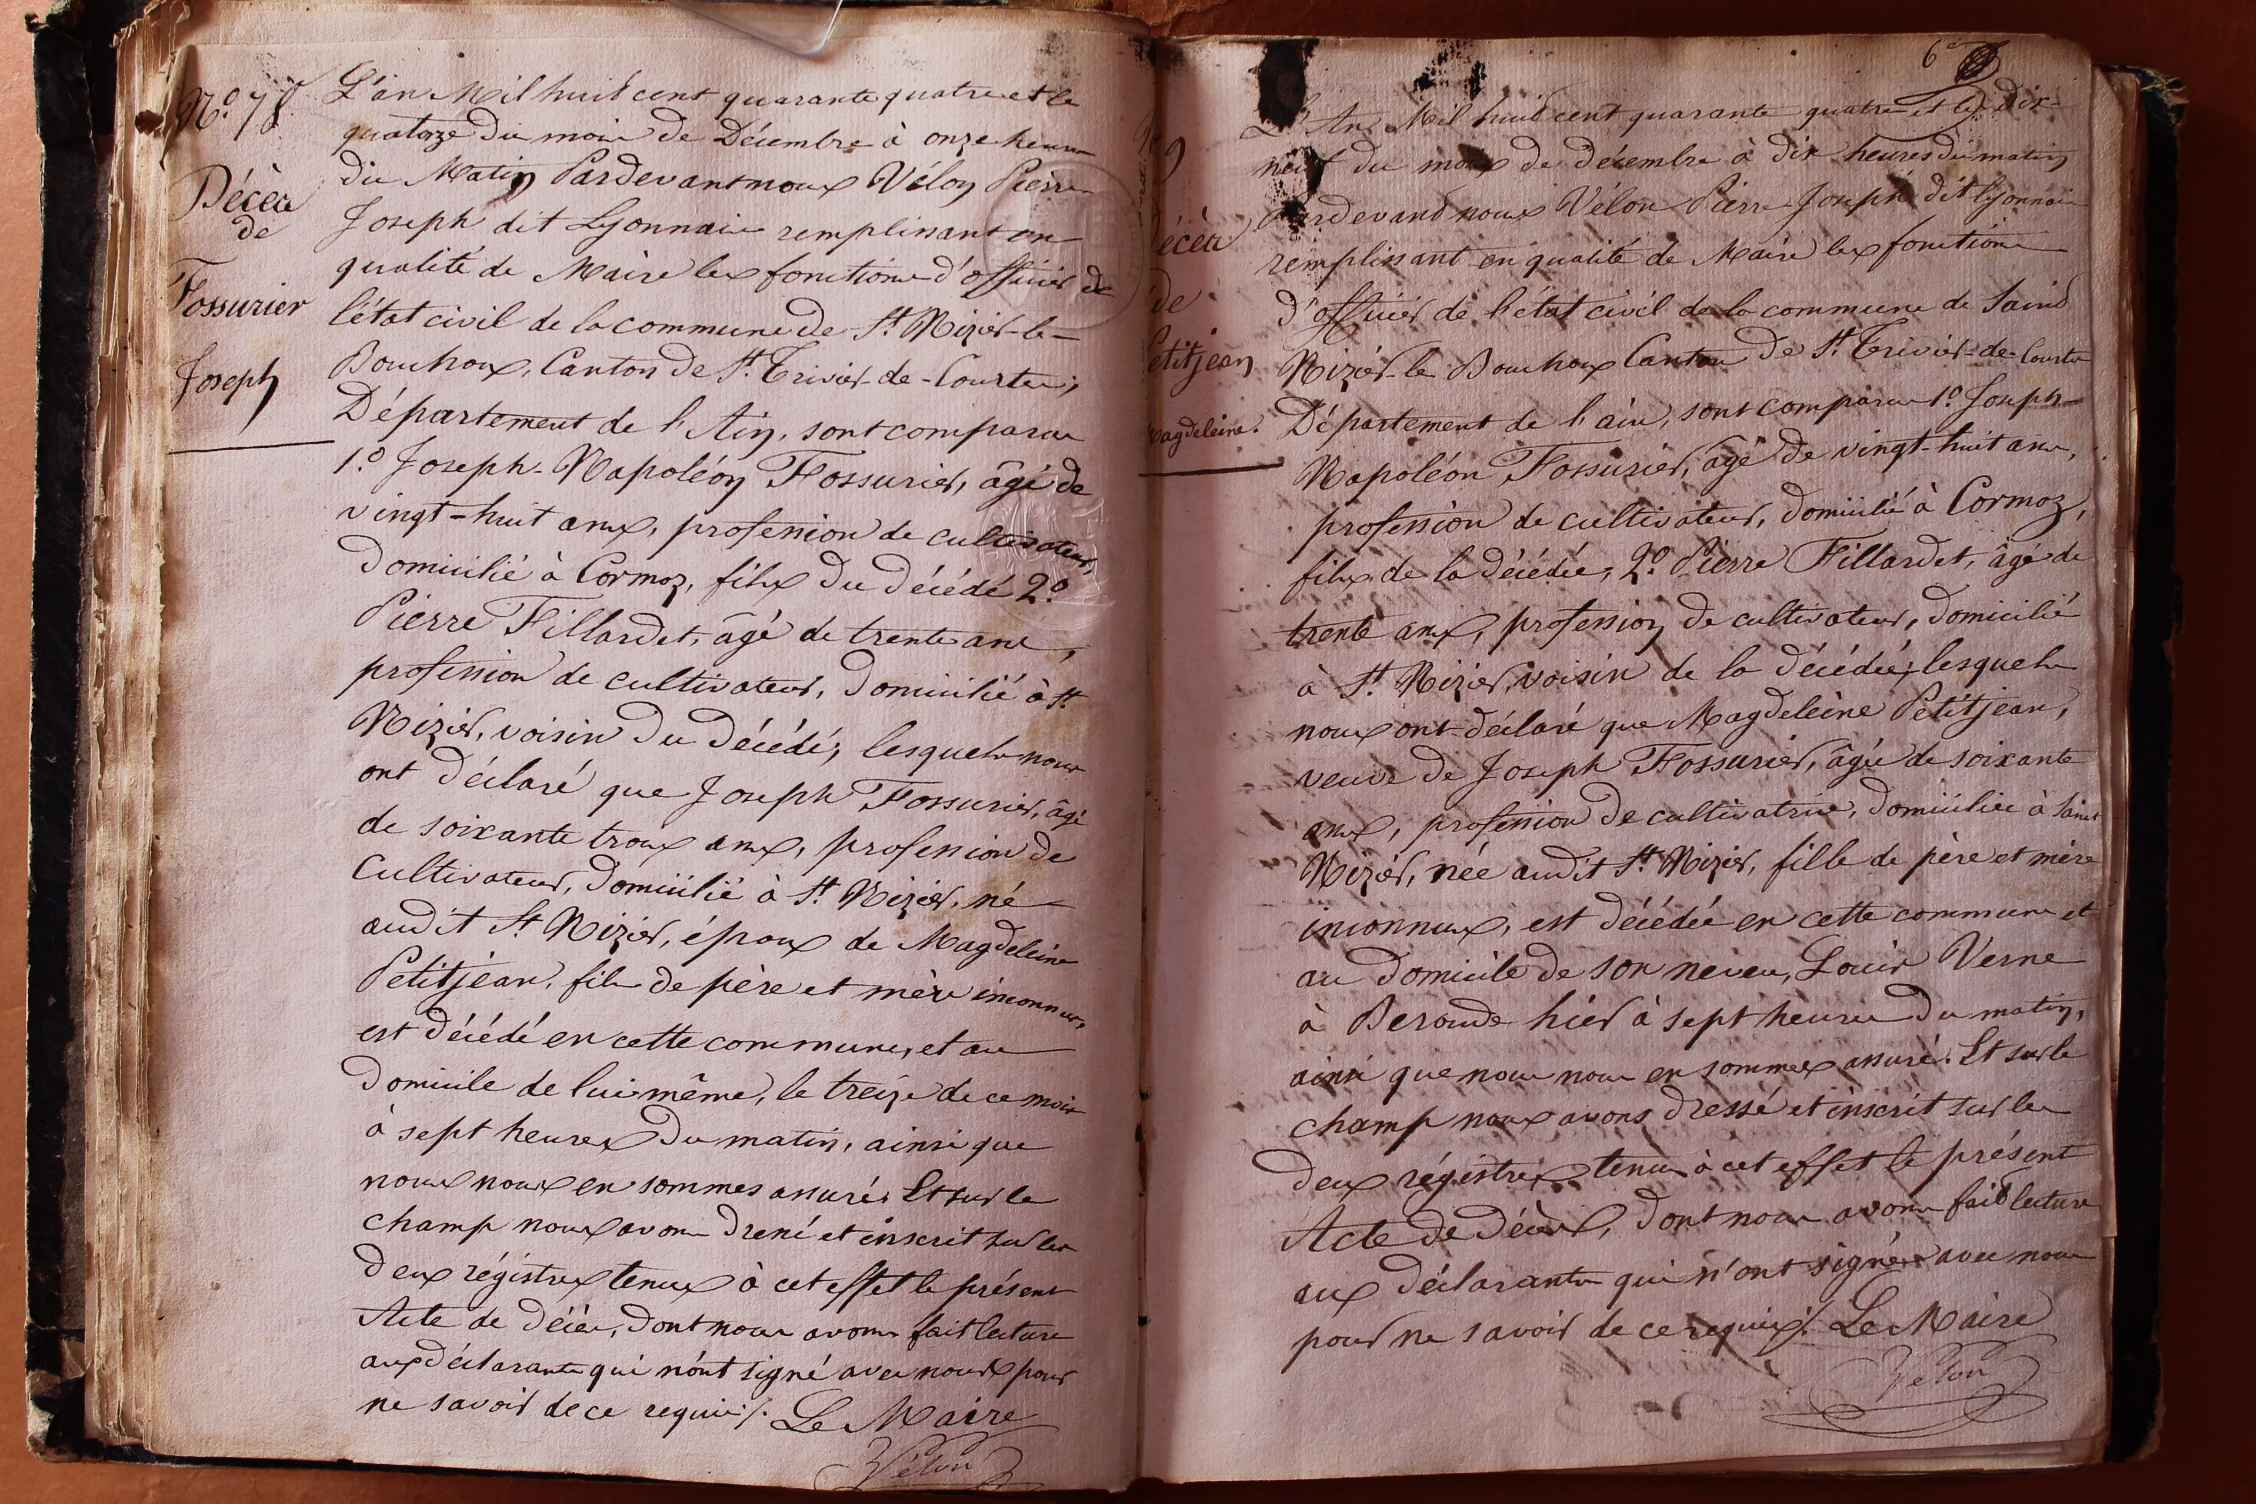 N.º 78
Décès
de
Fossurier
Joseph
L'an Mil huit cent quarante quatre et le
quatorze du mois de Décembre à onze heures
du Matin Pardevant nous Vélon Pierre
Joseph dit Lyonnais remplissant en
qualité de Maire les fonctions d'officier de
l'état civil de la commune de St Nizier-le-
Bouchoux, Canton de St Trivier-de-Courtes,
Département de l'Ain, sont comparus
1.º Joseph-Napoléon Fossurier, âgé de
vingt-huit ans, profession de cultivateur,
domicilié à Cormoz, fils du décédé 2.º
Pierre Fillardet, âgé de trente ans,
profession de cultivateur, domicilié à St
Nizier, voisin du décédé; lesquels nous
ont déclaré que Joseph Fossurier, âgé
de soixante trois ans, profession de
Cultivateur, domicilié à St Nizier, né
audit St Nizier, époux de Magdeleine
Petitjean, fils de père et mère inconnus,
est décédé en cette commune, et au
domicile de lui-même, le treize de ce mois
à sept heures du matin, ainsi que
nous nous en sommes assuré. Et sur le
champ nous avons dressé et inscrit sur les
deux régistres tenus à cet effet le présent
Acte de décès, dont nous avons fait lecture
aux déclarants qui n'ont signé avec nous pour
ne savoir de ce requis ⁒ Le Maire
Vélon
6
9
écès
de
etitjean
agdeleine.
L'An Mil huit cent quarante quatre et le dix-
neuf du mois de décembre à dix heures du matin
Pardevant nous Vélon Pierre-Joseph dit Lyonnais
remplissant en qualité de Maire les fonctions
d'officier de l'état civil de la commune de Saint
Nizier-le Bouchoux Canton de St Trivier-de-Courtes
Département de l'ain, sont comparus 1.º Joseph-
Napoléon Fossurier, âgé de vingt-huit ans,
profession de cultivateur, domicilié à Cormoz,
fils de la décédée; 2.º Pierre Fillardet, âgé de
trente ans, profession de cultivateur, domicilié
à St Nizier, voisin de la décédée; lesquels
nous ont déclaré que Magdeleine Petitjean,
veuve de Joseph Fossurier, âgée de soixante
ans, profession de cultivatrice, domiciliée à Saint
Nizier, née audit St Nizier, fille de père et mère
inconnus, est décédée en cette commune et
au domicile de son neveu, Louis Verne
à Beroude hier à sept heures du matin,
ainsi que nous nous en sommes assuré. Et sur le
champ nous avons dressé et inscrit sur les
deux régistres tenus à cet effet le présent
Acte de Décès, dont nous avons fait lecture
aux déclarants qui n'ont signé avec nous
pour ne savoir de ce requis ⁒ Le Maire
Vélon